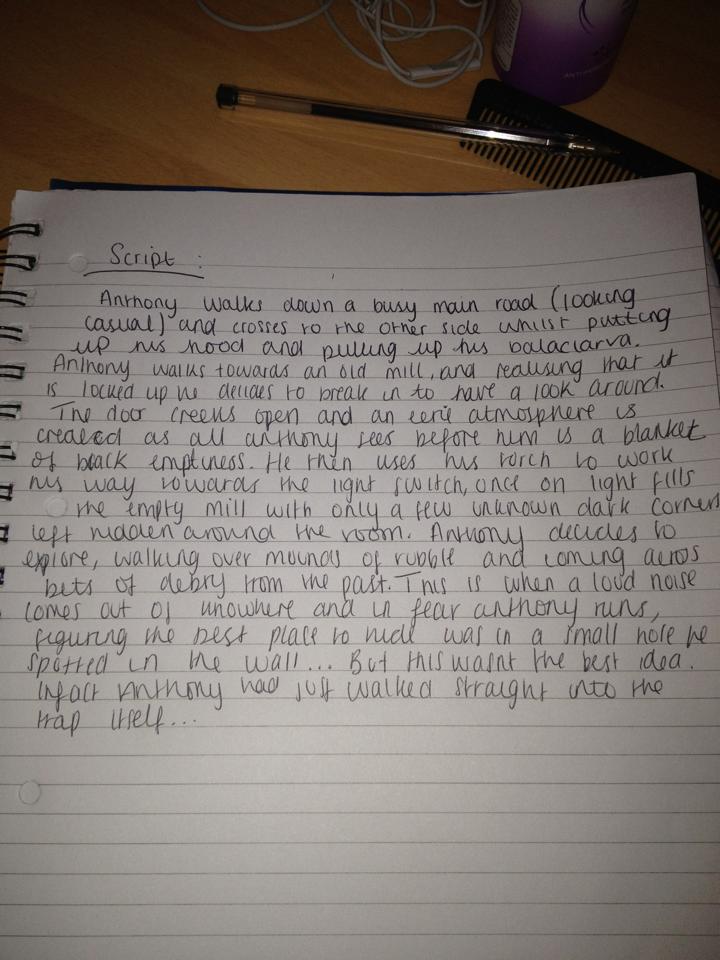 Script :
Anthony walks down a busy main road (looking
casual) and crosses to the other side whilst putting
up his hood and pulling up his balaclarva.
Anthony walks towards an old mill, and realising that it
is locked up he decides to break in to have a look around.
The door creeks open and an eerie atmosphere is
created as all anthony sees before him is a blanket
of black emptiness. He then uses his torch to work
his way towards the light switch, once on light fills
the empty mill with only a few unknown dark corners
left hidden around the room. Anthony decides to
explore, walking over mounds of rubble and coming across
bits of debry from the past. This is when a loud noise
comes out of unowhere and in fear anthony runs,
figuring the best place to hide was in a small hole he
spotted in the wall... But this wasnt the best idea.
Infact Anthony had just walked straight into the
trap itself...